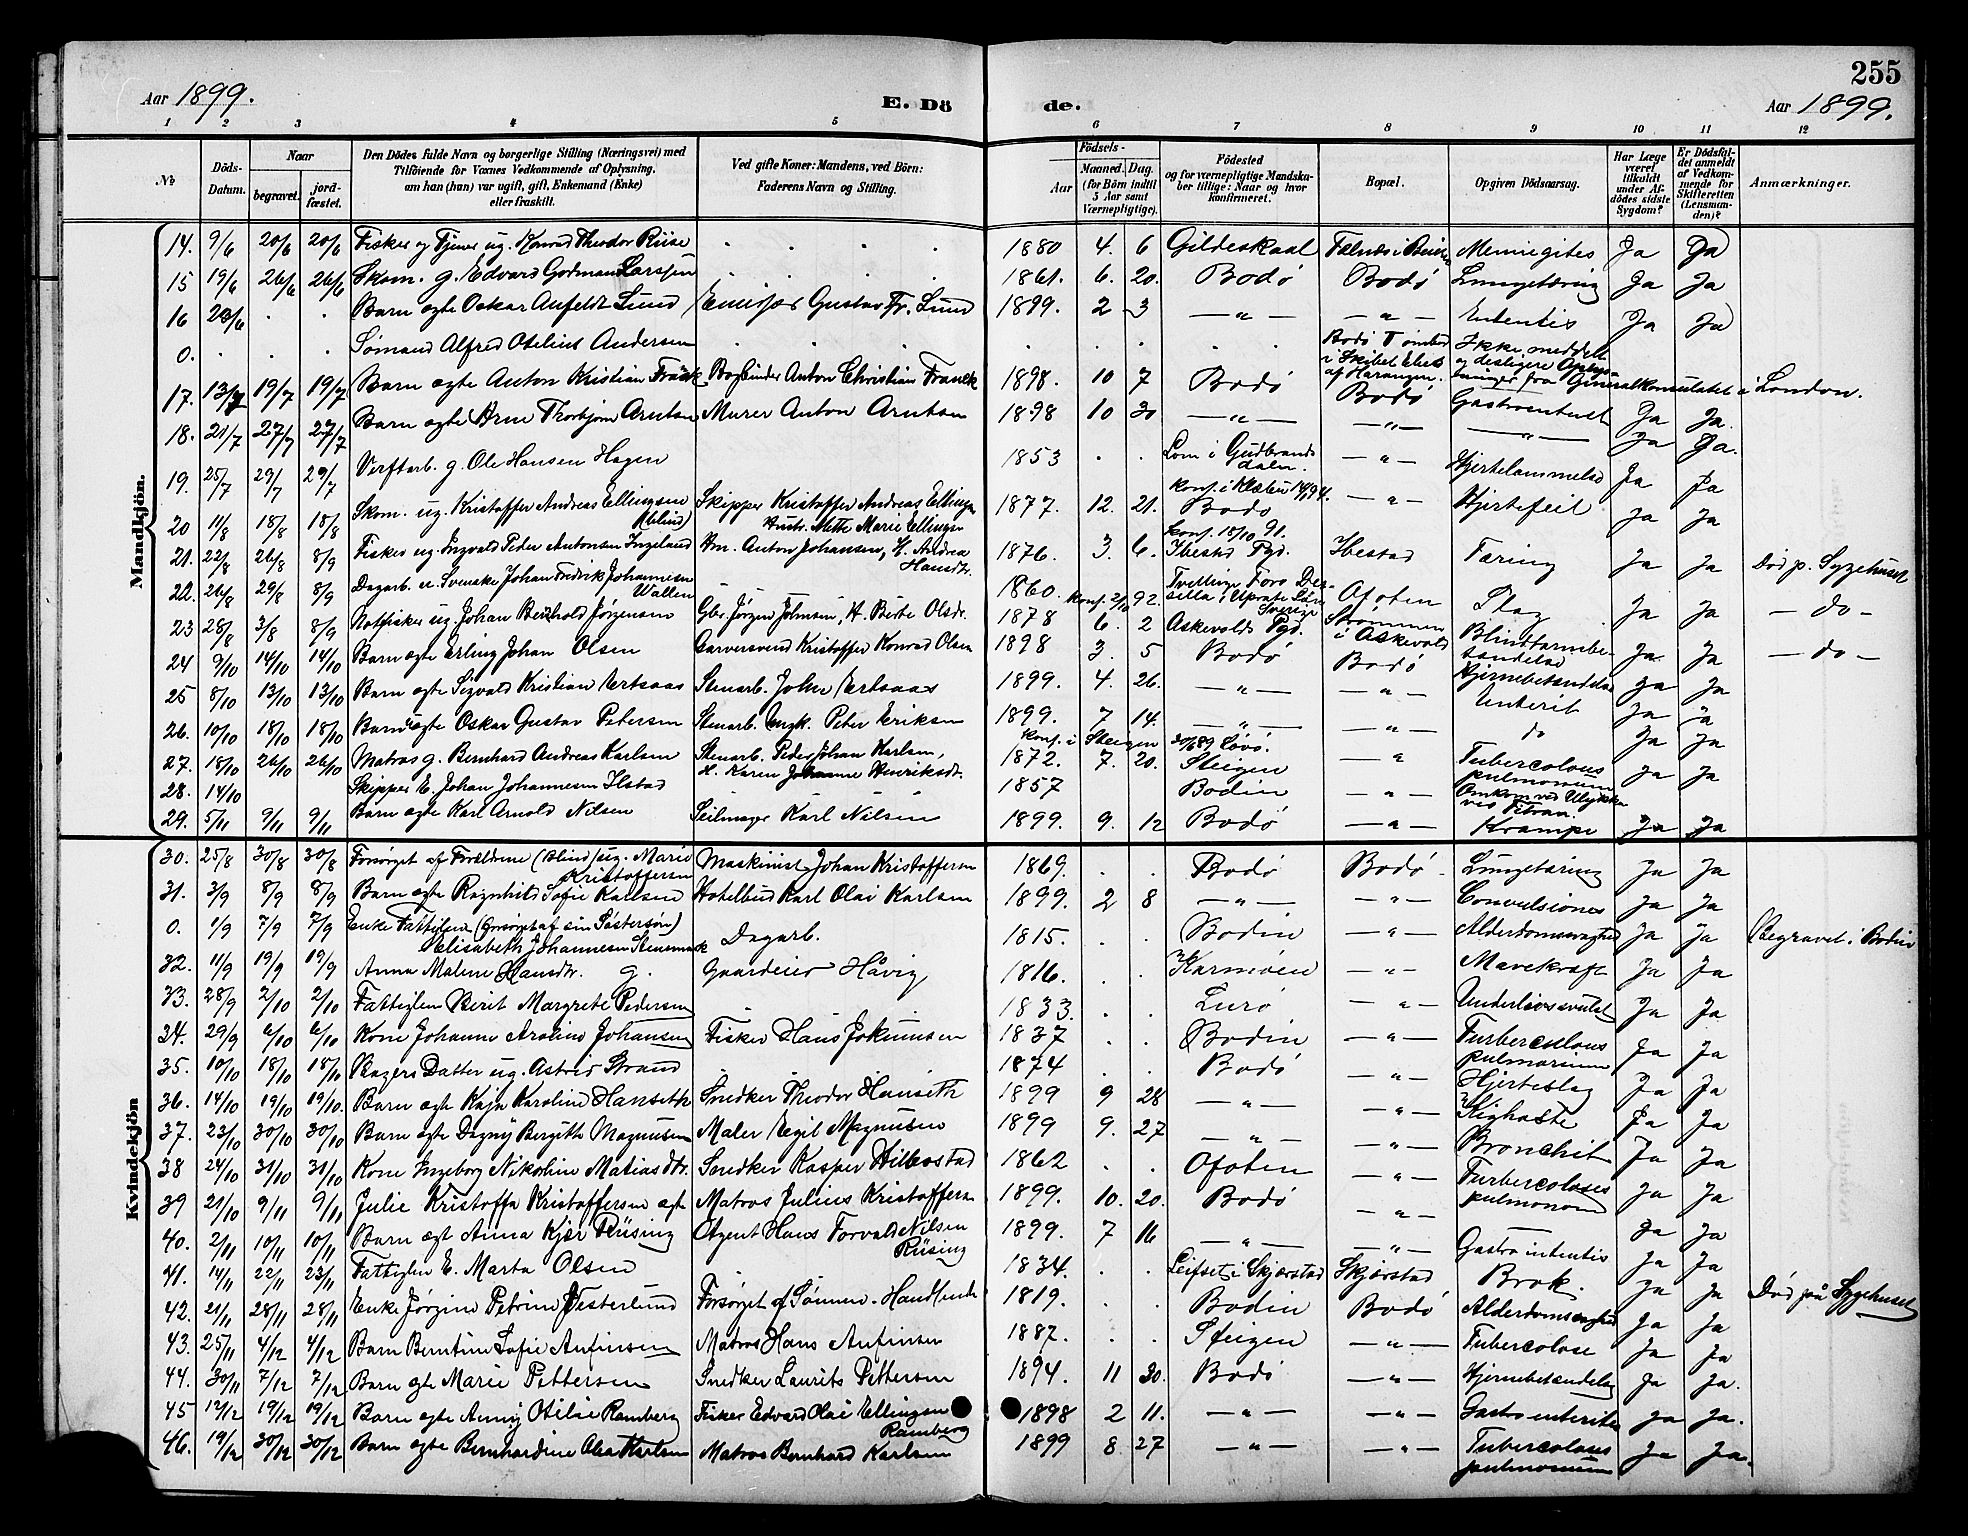 255
Aar 1899.
E. Dö
de.
Aar 1899.
1 2 3 4 5 6 7 8 9 10 11 12
№
Döds-Datum.
Naar
begravet.
jordfæstet.
Den Dödes fulde Navn og borgerlige Stilling (Næringsvei) med Tilföiende for Voxnes Vedkommende af Oplysning, om han (hun) var ugift, gift, Enkemand (Enke) eller fraskilt.
Ved gifte Koner: Mandens, ved Börn: Faderens Navn og Stilling.
Födsels-
Aar
Maaned. Dag. (for Börn indtil 5 Aar samt Værnepligtige).
Födested og for værnepligtige Mandskaber tillige: Naar og hvor konfirmeret.
Bopæl.
Opgiven Dödsaarsag.
Har Læge været tilkaldt under Afdödes sidste Sygdom?
Er Dödsfaldet anmeldt af Vedkommende for Skifteretten (Lensmanden)?
Anmærkninger.
Mandkjön.
14. 9/6 20/6 20/6 Fisker og Tjener ug. Konrad Theodor Riise 1880 4. 6 Gildeskaal Ja Ja
15 19/6 26/6 26/6 Skom. g. Edvard Godman Larssen 1861. 6. 20. Bodö Bodö Lungetæring Ja Ja
16 23/6 . . Barn ægte Oskar Anfeldt Lund Gustav Fr. Lund 1899. 2 3 — " — — " — Ja Ja
0. . . . Sömand Alfred Otelius Andersen . Ikke meddelt Generalkonsulatet i London.
17. 13/7 19/7 19/7 Barn ægte Anton Kristian Franck Bogbinder Anton Christian Franck 1898. 10 7 Bodö Bodö Ja Ja.
18. 21/7 27/7 27/7 Barn ægte Arne Thorbjörn Arntsen Murer Anton Arntsen 1898 10 30 — " — — " — — " — Ja Ja.
19. 25/7 29/7 29/7 Verftarb. g. Ole Hansen Hagen 1853 . . Lom i Gudbrandsdalen. — " — Ja Ja
20 11/8 18/8 18/8 Skom. ug. Kristoffer Andreas Ellingsen (blind) Skipper Kristoffer Andreas Ellingsen Hustr. Mette Marie Ellingsen 1877. 12. 21. Bodö — " — Hjertefeil Ja Ja
21. 22/8 26/8 8/9 Fisker ug. Ingvald Peder Antonsen Hm. Anton Johansen, H. Andrea Hansdtr. 1876. 3. 6. konf. 18/10 91. Ibestad Pgd. Ibestad Tæring Ja Ja Död p. Sygehuset
22. 26/8 29/8 8/9 Dagarb. Svenske Johan Fredrik Johannesen Wallen — 1860. Ofoten Slag Ja Ja — do —
23 28/8 3/8 8/9 ug. Johan Jörgensen Jörgen Johnsen, H. Berte Olsdr. 1878 6. 2 konf. 2/10 92. Askevolds Pgd. Strömmen i Askevold Blindtarmbetændelse Ja Ja — do —
24 9/10 14/10 14/10 Barn ægte Erling Johan Olsen Garversvend Kristoffer Konrad Olsen 1898 3. 5 Bodö Bodö Hjernebetændelse Ja Ja
25 8/10 13/10 13/10 Barn ægte Sigvald Kristian Ertsaas Stenarb. John Ertsaas 1899. 4. 26. — " — — " — Enterit Ja Ja
26. 10/10 18/10 18/10 Barn uægte Oskar Gustav Petersen Stenarb. Peter Eriksen 1899. 7 14. — " — — " — do Ja Ja
27. 18/10 26/10 26/10 Matros g. Bernhard Andreas Karlsen Stenarb. Peder Johan Karlsen, H. Karen Johanne Henriksdtr. konf. i Steigen 1872. 7. 20. Steigen — " — Tuberculous pulmonum Ja Ja
28. 14/10 Skipper E. Johan Johannesen Ilstad 1857 Bodin — " — Omkom ved Ulykke
29. 5/11 9/11 9/11 Barn ægte Karl Arnold Nilsen Seilmager Karl Nilsen 1899. 9. 12 Bodö — " — Krampe Ja Ja
Kvindekjön
30. 25/8 30/8 30/8 Forsörget af Forældrene (Blind) ug. Marie Kristoffersen Maskinist Johan Kristoffersen 1869. . . Bodö Bodö Lungetæring Ja Ja
31. 3/9 8/9 8/9 Barn ægte Ragnhild Sofie Karlsen Hotelbud Karl Olai Karlsen 1899. 2 8 — " — — " — Convulsiones Ja Ja
0. 1/9 7/9 7/9 Enke Fattiglem (Forsörget af sin Söstersön) Elisabeth Johannesen Stensmark Dagarb. 1815. . . Bodin — " — Alderdomssvaghed Ja Ja Begravet i Bodin
32. 11/9 19/9 19/9 Anna Malene Hansdtr. g. Gaardeier Håvig 1816. . . Karmöen — " — Mavekræft Ja Ja
33. 28/9 2/10 2/10 Fattiglem Berit Margrete Pedersen . 1833. . . Lurö — " — Underlivssvulst Ja Ja
34. 29/9 6/10 6/10 Kone Johanne Aroline Johansen Fisker Hans Jokumsen 1837 . . Bodin — " — Turberculous pulmonum Ja Ja
35. 10/10 18/10 18/10 Bagers Datter ug. Astrid Strand . 1874 . . Bodö — " — Hjerteslag Ja Ja
36. 14/10 19/10 19/10. Barn ægte Kaja Karoline Hanseth Snedker Theodor Hanseth 1899 9 28 — " — — " — Kighoste Ja Ja
37. 23/10 30/10 30/10 Barn ægte Dagny Bergitte Magnussen Maler Egil Magnusen 1899 9. 27 — " — — " — Bronchit Ja Ja
38 24/10 31/10 31/10 Kone Ingeborg Nikoline Matiasdtr. Snedker Kasper Hillestad 1862 . . Ofoten — " — Turberculoses pulmonom Ja Ja
39 21/10 9/11 9/11 Julie Kristoffa Kristoffersen ægte Matros Julius Kristoffersen 1899. 10. 20. Bodö — " — — Ja Ja
40. 2/11 10/11 10/11 Barn ægt Anna Kjær Rüsing Agent Hans Torvald Nilsen Rüsing 1899. 7 16 — " — — " — Gastro intentis Ja Ja
41. 14/11 22/11 23/11 Fattiglem E. Marta Olsen . 1834. . . Leifset i Skjerstad Skjerstad Brok. Ja Ja Död på Sygehuset
42. 21/11 28/11 28/11 Enke Jörgine Petrine Vesterlund Forsörget af Sönnen. 1819. . . Bodin Bodö Alderdomssvaghed Ja Ja
43. 25/11 4/12 4/12 Barn Berntine Sofie Anfinsen Matros Hans Anfinsen 1887. . . Steigen — " — Tubercolose Ja Ja
44. 30/11 7/12 7/12 Barn ægte Marie Pettersen Snedker Laurits Pettersen 1894. 11 30. Bodö — " — Hjernebetændelse Ja Ja.
45 12/12 19/12 19/12 Barn ægte Anny Otilse Ramberg Fisker Edvard Olai Ellingsen Ramberg 1898 2 11. — " — — " — Gastro enterites Ja Ja.
46. 19/12 30/12 30/12 Barn ægte Bernhardine Olea Karlsen Matros Bernhard Karlsen 1899 8. 27 — " — — " — Tubercoloses pulmonum Ja Ja.